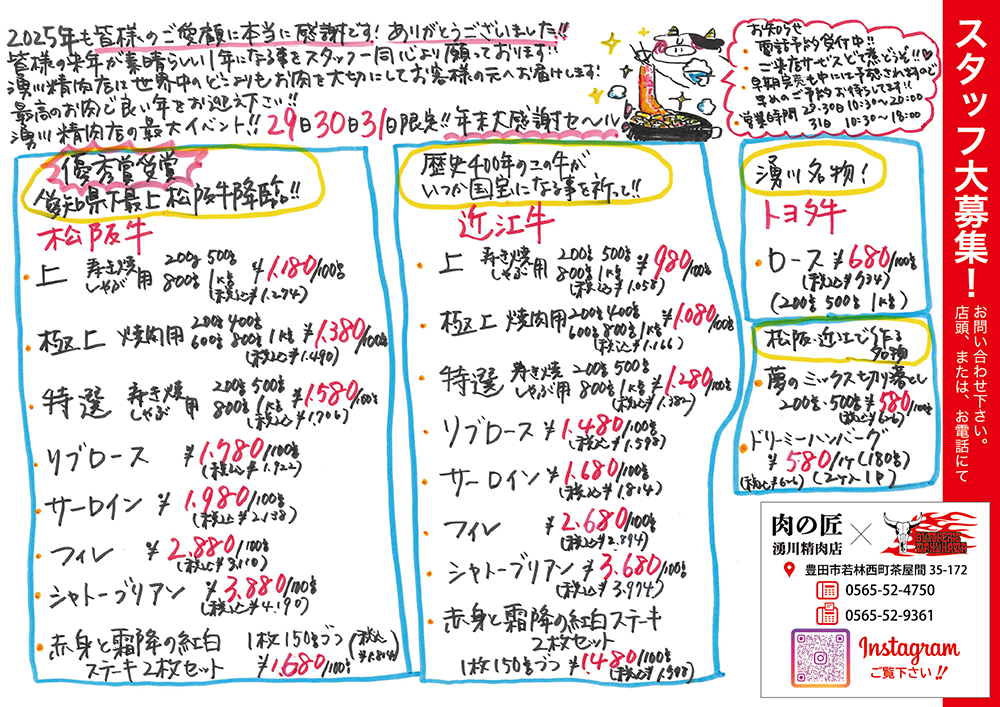 2025年も皆様のご愛顧に本当に感謝です! ありがとうございました!!
皆様の来年が素晴らしい1年になる事をスタッフ一同心より願っております
湧川精肉店は世界中のどこよりもお肉を大切にしてお客様の元へお届けします
最高のお肉で良い年をお迎え下さい!!
湧川精肉店の最大イベント!! 29日30日31日限定!! 年末大感謝セール
お知らせ
・電話予約受付中!!
・ご来店サービスとて
早期完売も中には予想されますので
早めのご予約お待ちします!!
・営業時間 29.30日 10:30〜20:00
31日 10:30〜18:00
優秀賞受賞
愛知県下最上松阪牛降臨!!
松阪牛
・上 寿き焼 しゃぶ用 200g 500g 800g 1kg ¥1.180/100g
(税込¥1.274)
・極上 焼肉用 200g 400g 600g 800g 1kg ¥1.380/100g
(税込¥1.490)
・特選 寿き焼 しゃぶ用 200g 500g 800g 1kg ¥1.580/100g
(税込¥1.706)
・リブロース ¥1.780/100g
(税込¥1.922)
・サーロイン ¥1.980/100g
(税込¥2.138)
・フィレ ¥2.880/100g
(税込¥3.110)
・シャトーブリアン ¥3.880/100g
(税込¥4.190)
・赤身と霜降の紅白 1枚150gづつ (税込¥1.814)
ステーキ2枚セット ¥1.680/100g
歴史400年のこの牛が
いつか国宝になる事を祈って!!
近江牛
・上 寿き焼 しゃぶ用 200g 500g 800g 1kg ¥980/100g
(税込¥1.058)
・極上 焼肉用 200g 400g 600g 800g 1kg ¥1.080/100g
(税込¥1.166)
・特選 寿き焼 しゃぶ用 200g 500g 800g 1kg ¥1.280/100g
(税込¥1.382)
・リブロース ¥1.480/100g
(税込¥1.598)
・サーロイン ¥1.680/100g
(税込¥1.814)
・フィレ ¥2.680/100g
(税込¥2.894)
・シャトーブリアン ¥3.680/100g
(税込¥3.974)
・赤身と霜降の紅白ステーキ
2枚セット
1枚150gづつ ¥1.480/100g
(税込¥1.598)
湧川名物!
トヨタ牛
・ロース ¥680/100g
(税込¥734)
(200g 500g 1kg)
松阪・近江で作る
名物
・夢のミックス切り落とし
200g・500g ¥580/100g
(税込¥626)
・ドリーミーハンバーグ
¥580/1ケ(180g)
(税込¥626) (2ケ入1P)
スタッフ大募集!
お問い合わせ下さい。
店頭、または、お電話にて
肉の匠
湧川精肉店
×
豊田市若林西町茶屋間 35-172
0565-52-4750
0565-52-9361
Instagram
ご覧下さい!!